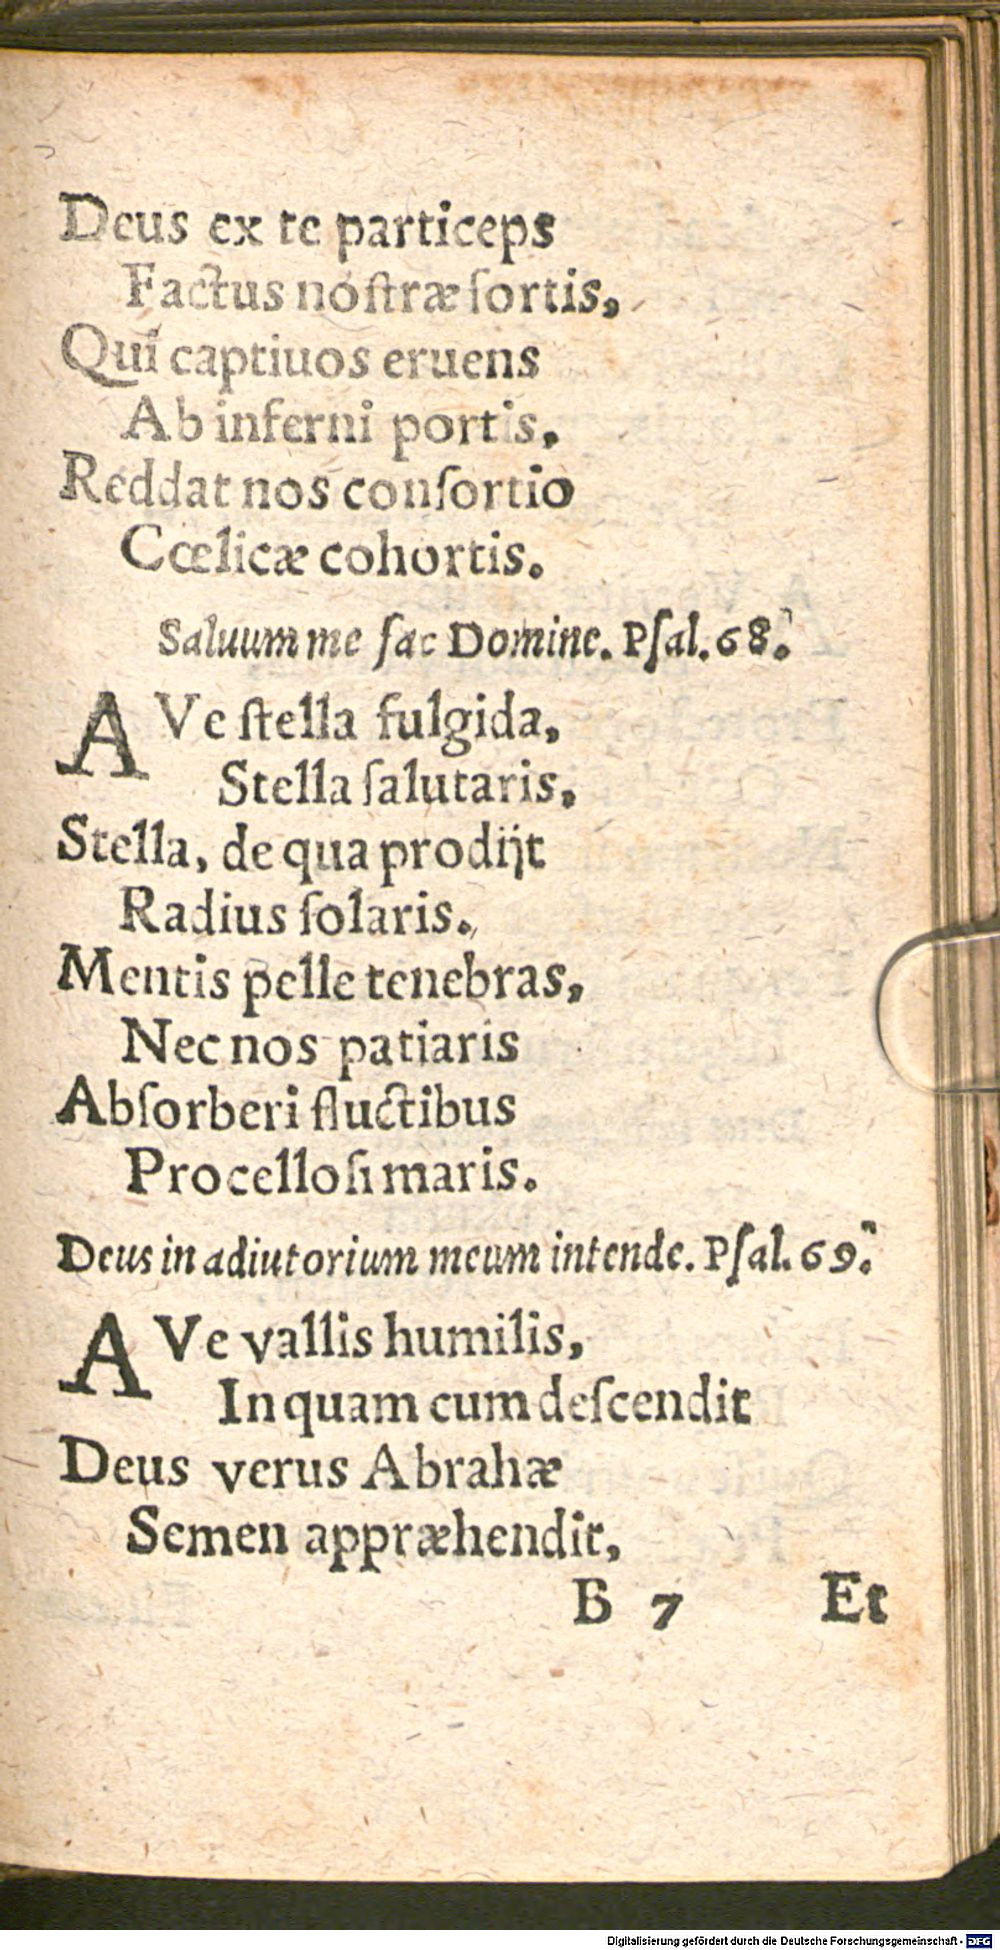 Deus ex te particeps
Factus nostræ ſortis,
Qui captiuos eruens
Ab inferni portis,
Reddat nos conſortio
Cœlicæ cohortis.
Saluum me fac Domine. Pſal. 68.
AVe stella fulgida,
Stella ſalutaris,
Stella, de qua prodijt
Radius ſolaris.
Mentis pelle tenebras,
Nec nos patiaris
Abſorberi fluctibus
Procelloſi maris.
Deus in adiutorium meum intende. Pſal. 69.
AVe vallis humilis,
In quam cum deſcendit
Deus verus Abrahæ
Semen appræhendit,
B 7 Et
Digitalisierung gefördert durch die Deutsche Forschungsgemeinschaft - DFG